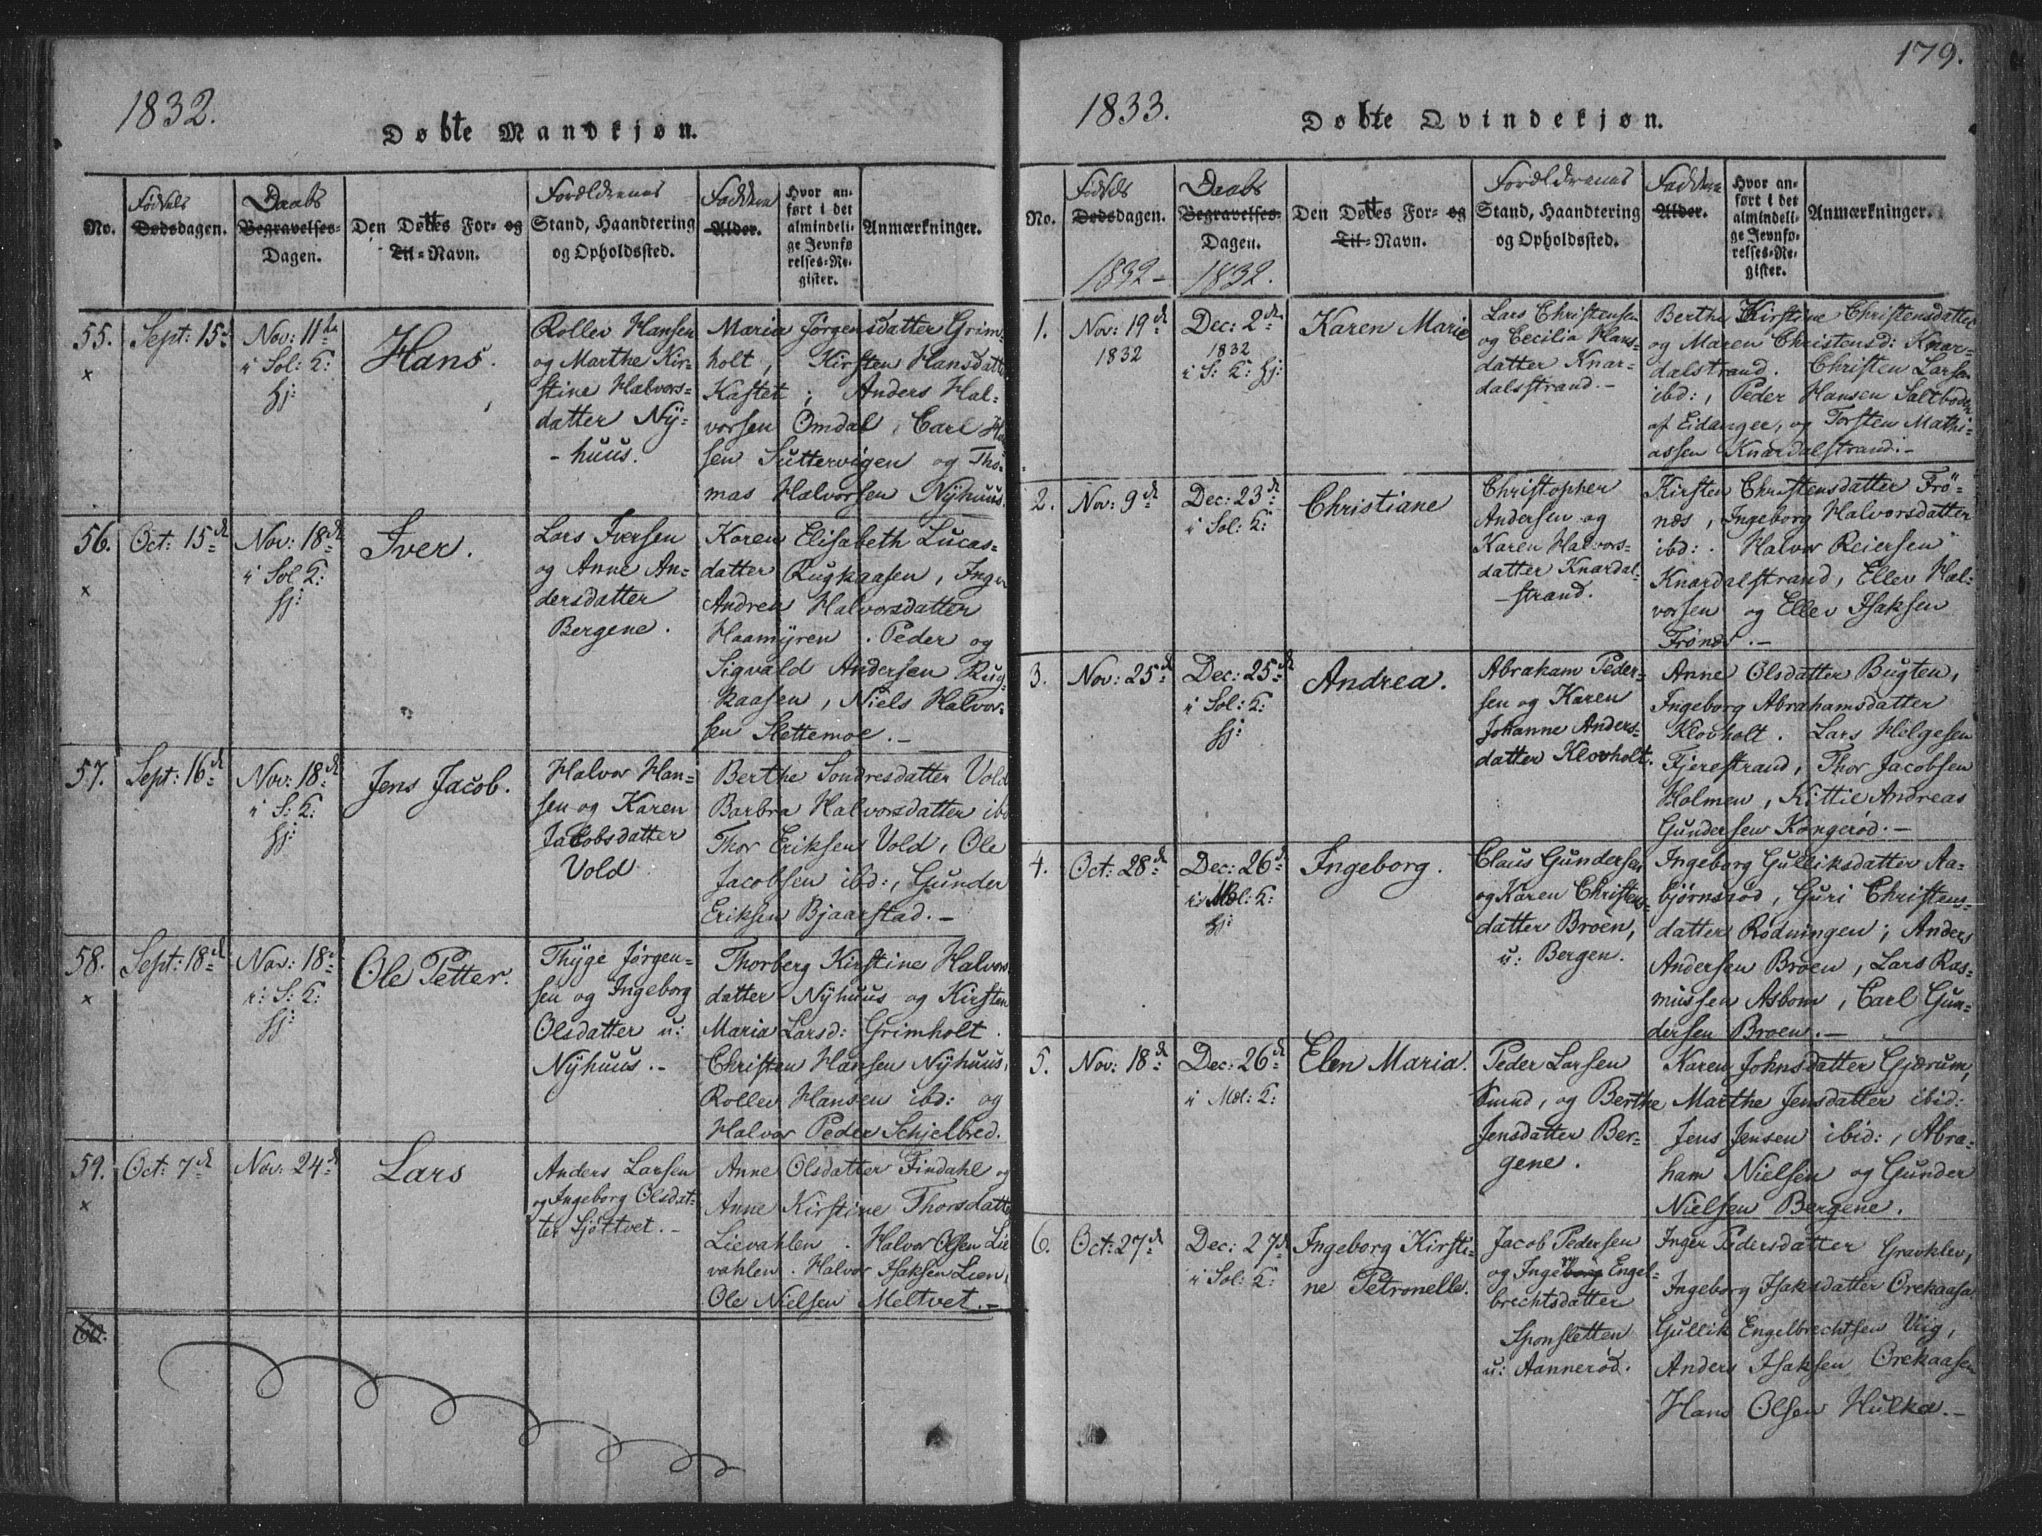 1832.
Døbte Mandkjøn.
No.
Fødsels
Dødsdagen.
Daabs
Begravelses-
Dagen.
Den Døbtes For- og
Til-Navn.
Forældrenes
Stand, Haandtering
og Opholdssted.
Faddere
Alder.
Hvor an-
ført i det
almindeli-
ge Jevnfø-
relses-Re-
gister.
Anmærkninger.
55.
x
Sept: 15d
Nov: 11te
i Sol: K:
hj:
Hans.
Rollev Hansen
og Marthe Kir-
stine Halvors-
datter Ny-
-huus.
Maria Jörgensdatter Grim-
holt, Kirsten Hansdatt
Kastet; Anders Hal-
vorsen Omdal, Carl
sen Suttervigen og Tho-
mas Halvorsen Nyhuus.
56.
x
Oct: 15d
Nov: 18d
i Sol K:
hj:
Iver.
Lars Iversen
og Anne An-
dersdatter
Bergene.
Karen Elisabeth Lucas-
datter Rugkaasen, Inger
Andrea Halvorsdatter
Haamyren. Peder og
Sigvald Andersen Rug-
kaasen, Niels Halvor-
sen Slettemoe.-
57.
Sept: 16d
Nov: 18d
i S: K:
hj:
Jens Jacob.
Halvor Han-
sen og Karen
Jacobsdatter
Vold
Berthe Sondresdatter Vold
Barbra Halvorsdatter ibd
Thor Eriksen Vold, Ole
Jacobsen ibd:, Gunder
Eriksen Bjaarstad.-
58.
x
Sept: 18d
Nov: 18d
i: S: K:
hj:
Ole Petter.
Thyge Jørgen-
sen og Ingeborg
Olsdatter u:
Nyhuus.-
Thorberg Kirstine Halvors
datter Nyhuus og Kirsten
Maria Larsd: Grimholt.
Christen Hansen Nyhuus,
Rollev Hansen ibd: og
Halvor Peder Schjelbred.
59.
x
Oct: 7d
Nov: 24d
Lars
Anders Larsen
og Ingeborg Olsdat-
ter Sjöttvet.-
Anne Olsdatter Findahl og
Anne Kirstine Thorsdatte
Lievahlen. Halvor Olsen Lie
vahlen. Halvor Isaksen Lien,
Ole Nielsen Meltvet.-
60.
179.
1833.
Døbte Qvindekjøn.
No.
Fødsels
Dødsdagen.
Daabs
Begravelses-
Dagen.
Den Døbtes For- og
Til-Navn.
Forældrenes
Stand, Haandtering
og Opholdssted.
Faddere
Alder.
Hvor an-
ført i det
almindeli-
ge Jevnfø-
relses-Re-
gister.
Anmærkninger.
1832-
1832.
1.
Nov: 19d
1832
Dec: 2d
1832
i S: K: hj:
Karen Marie
Lars Christensen
og Cecilia Hans-
datter Knar-
dalsstrand.-
Berthe Kirstine Christensdatter
og Maren Christensd: Knar-
dalstrand. Christen Larsen
ibd:, Peder Hansen Saltboden
af Eidanger, og Torsten Mathi-
assen Knardalstrand.-
2.
Nov: 9d
Dec: 23d
i Sol: K:
Christiane
Christopher
Andersen og
Karen Halvors-
datter Knardal-
-strand.
Kirsten Christensdatter Frö-
næs, Ingeborg Halvorsdatter
ibd:. Halvor Reiersen
Knardalstrand, Ellev Hal-
vorsen og Ellev Isaksen
Frönæs.-
3.
Nov: 25d
Dec: 25d
i Sol: K:
hj:
Andrea.
Abraham Peder-
sen og Karen
Johanne Anders-
datter Klovholt.
Anne Olsdatter Bugten,
Ingeborg Abrahamsdatter
Klovholt. Lars Helgesen
Fjerestrand, Thor Jacobsen
Holmen, Kittil Andreas
Gundersen Kongerød.-
4.
Oct: 28d
Dec: 26d
i Mel: K:
hj:
Ingeborg.
Claus Gundersen
og Karen Christens-
datter Broen,
u: Bergen.
Ingeborg Gulliksdatter Aa-
bjørnsrød, Guri Christens-
datter Rødningen; Anders
Andersen Broen, Lars Ras-
mussen Asbom, Carl Gun-
dersen Broen.-
5.
Nov: 18d
Dec: 26d
i Mel: K:
Elen Maria.
Peder Larsen
Smud, og Berthe
Jensdatter Ber-
gene.
Karen Johnsdatter Gjærum,
Marthe Jensdatter ibid:
Jens Jensen ibid:, Abra-
ham Nielsen og Gunder
Nielsen Bergene.
6.
Oct: 27d
Dec: 27d
i Sol: K:
Ingeborg Kirsti-
ne Petronelle.
Jacob Pedersen
og Ingeborg Engel-
brechtsdatter
Sponsletten
u: Aannerød.
Inger Pedersdatter Gravklev,
Ingeborg Isaksdatter Orekaasa
Gullik Engelbrechtsen Viig,
Anders Isaksen Orekaasen
Hans Olsen Hulka.-